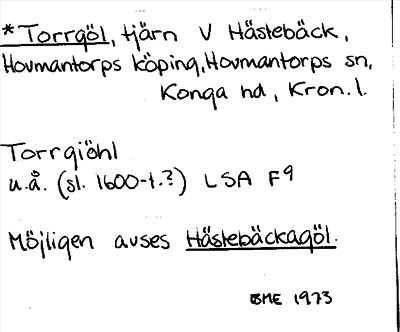 *Torrgöl, tjärn V Hästebäck,
Hovmantorps köping, Hovmantorps sn,
Konga hd, Kron. l.
Torrgiöhl
u.å. (sl. 1600-t.?) LSA F9
Möjligen avses Hästebäckagöl.
BME 1973